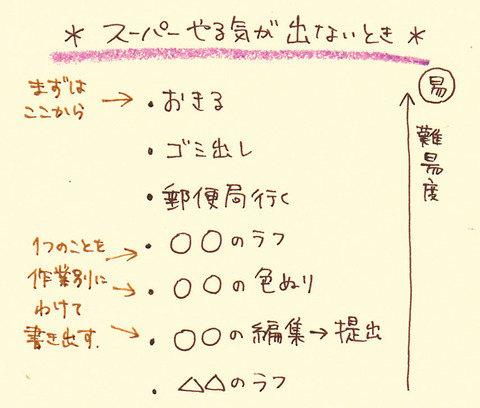 * スーパーやる気が出ないとき *
易
難易度
まずは
ここから
→ ・おきる
・ゴミ出し
・郵便局行く
1つのことを
作業別に
わけて
書き出す.
→ ・○○のラフ
→ ・○○の色ぬり
→ ・○○の編集→提出
・△△のラフ